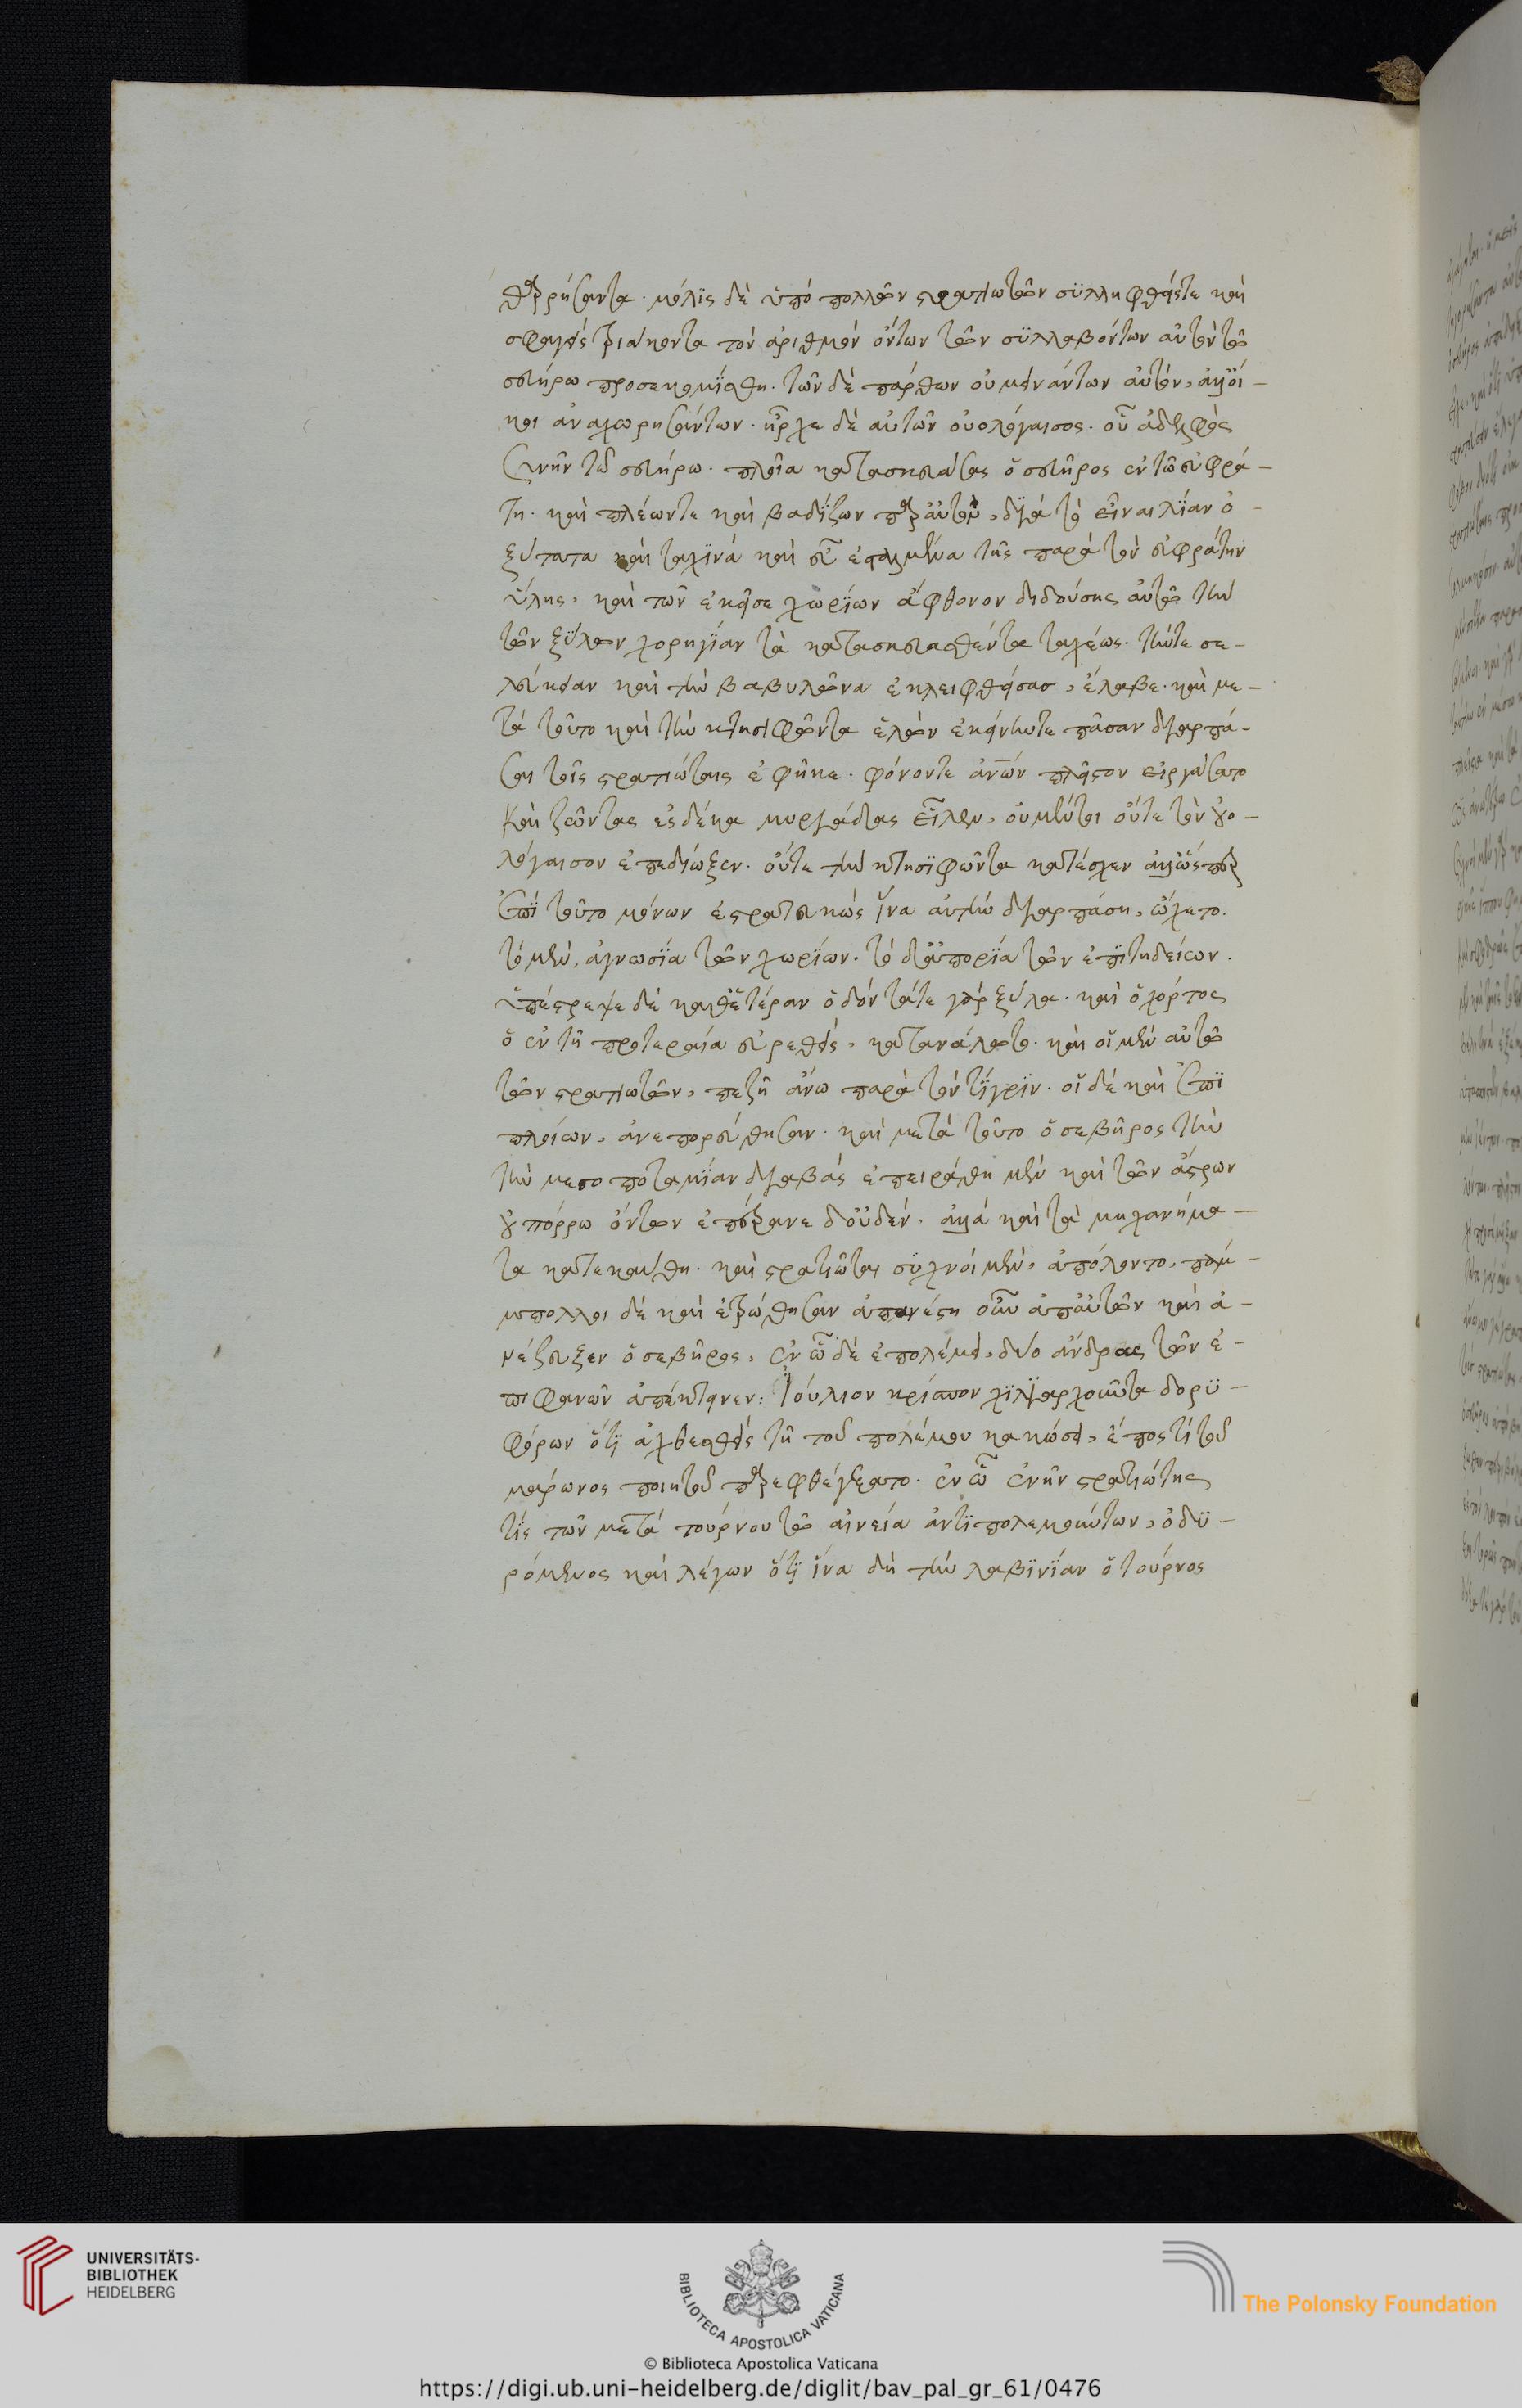 θαρρήσαντα. μόλϊς δὲ ὑπὸ πολλῶν στρατιωτῶν σϋλληφθείς τε καὶ
σφαγείς τριάκοντα τὸν ἀριθμὸν ὄντων τῶν σϋλλαβόντων αὐτὸν τῶ
σευήρω προσεκομίσθη. τῶν δὲ πάρθων οὐ μεινάντων αὐτὸν, ἀλλ' οἴ-
κοι ἀναχωρησάντων. ἦρχε δὲ αὐτῶν οὐολόγαισος. οὗ ἀδελφὸς
συνῆν τῶ σευήρω. πλοῖα κατασκευάσας ὁ σευῆρος ἐν τῶ εὐφρά-
τη. καὶ πλέωντε καὶ βαδίζων παρ' αὐτοῦ, διὰ τὸ εἶναι λίαν ὀ-
ξύτατα καὶ ταχινὰ καὶ εὖ ἐσταλμένα τῆς παρὰ τὸν εὐφράτην
ὕλης, καὶ τῶν ἐκεῖσε χωρίων ἄφθονον διδούσης αὐτῶ τὴν
τῶν ξύλων χορηγίαν τὰ κατασκευασθέντα ταχέως. τήν τε σε-
λεύκειαν καὶ τὴν βαβυλῶνα ἐκλειφθείσασ, ἔλαβε. καὶ με-
τὰ τοῦτο καὶ τὴν κτησιφῶντα ἑλὼν ἐκείνην τε πᾶσαν διαρπά-
σαι τοῖς στρατιώταις ἐφῆκε. φόνον τε ἀνων πλεῖστον εἰργάσατο
Καὶ ζῶντας ἐς δέκα μυριάδας εἷλεν, οὐ μέντοι οὔτε τὸν οὐο-
λόγαισον ἐπεδίωξεν. οὔτε τὴν κτησϊφῶντα κατέσχεν ἀλλ' ὥσπερ
ἐπὶ τοῦτο μόνων ἐστρατευκὼς ἵνα αὐτὴν διαρπάση, ὤχετο.
τὸ μὲν, ἀγνωσία τῶν χωρίων. τὸ δ' ἀπορία τῶν ἐπιτηδείων.
ὑπέστρεψε δὲ καθ' ἑτέραν ὁδόν τάτε γὰρ ξύλα. καὶ ὁ χόρτος
ὁ ἐν τῆ προτεραία εὑρεθεὶς, κατανάλωτο. καὶ οἱ μὲν αὐτῶ
τῶν στρατιωτῶν, πεζῆ ἄνω παρὰ τὸν τίγρϊν. οἱ δὲ καὶ ἐπὶ
πλοίων, ἀνεπορεύθησαν. καὶ μετὰ τοῦτο ὁ σεβῆρος τὴν
τὴν μεσοποταμίαν διαβὰς ἐπειράθη μὲν καὶ τῶν ἄτρων
οὐ πόρρω ὄντων ἐπέρανε δ' οὐδέν. ἀλλὰ καὶ τὰ μηχανήμα-
τα κατεκαύθη. καὶ στρατιῶται συχνοὶ μὲν, ἀπόλοντο, παμ-
μπολλοι δὲ καὶ ἐτρώθησαν ἀπανέστη οὖν ἀπ' αὐτῶν καὶ ἀ-
νέζευξεν ὁ σεβῆρος, ἐν ὧ δὲ ἐπολέμει, δύο ἄνδρας τῶν ἐ-
πιφανῶν ἀπέκτεινεν: Ἰούλιον κρίσπον χιλιαρχοῦντα δορϋ-
φόρων ὅτι ἀχθεσθεὶς τῆ τοῦ πολέμου κακώσει, ἔπος τί τοῦ
μαρωνος ποιητοῦ παρεφθέγξατο. ἐν ὧ ἐνῆν στρατιώτης
τὶς τῶν μετὰ τούρνου τῶ αἰνεία ἀντιπολεμούντων, ὀδϋ-
ρόμενος καὶ λέγων ὅτι ἵνα δὴ τὴν λαβϊνίαν ὁ τούρνος
UNIVERSITÄTS-
BIBLIOTHEK
HEIDELBERG
BIBLIOTECA APOSTOLICA VATICANA
The Polonsky Foundation
© Biblioteca Apostolica Vaticana
https://digi.ub.uni-heidelberg.de/diglit/bav_pal_gr_61/0476